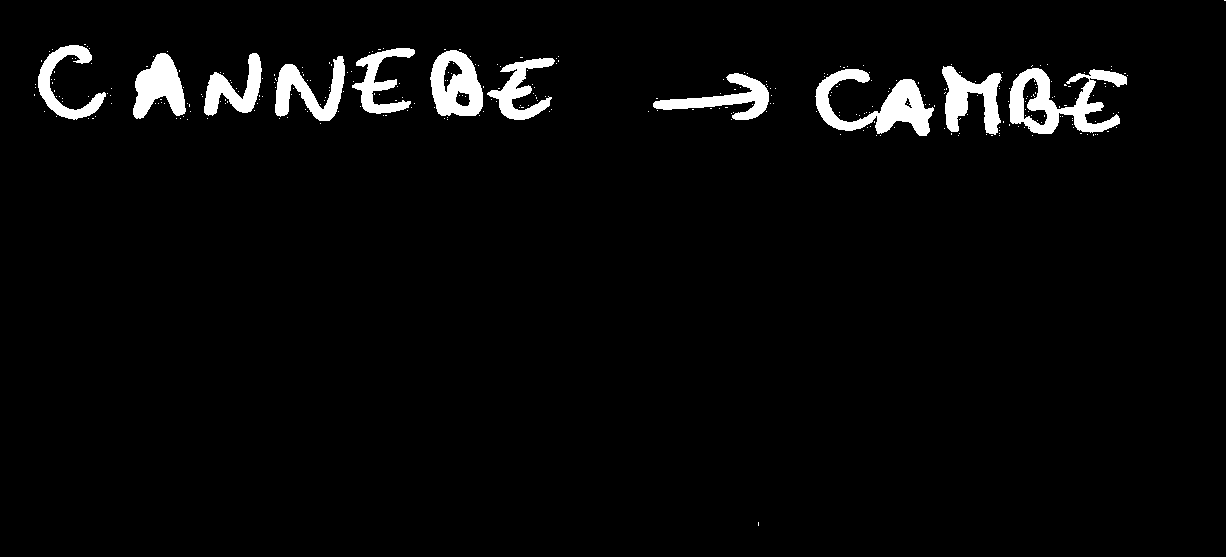 CANNEBE → CAMBE